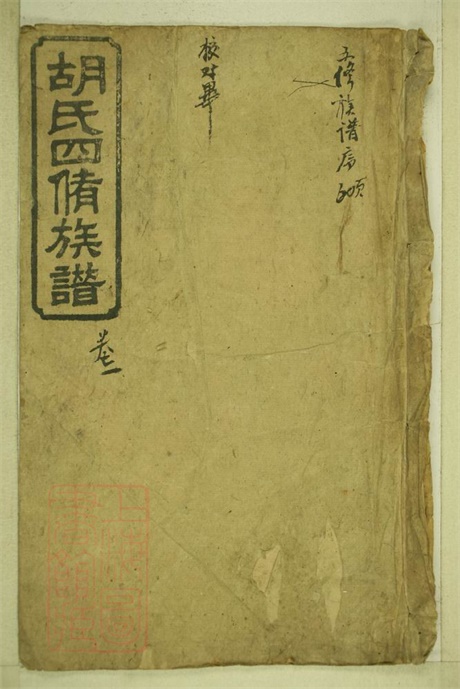 五修族譜序
校对畢
胡氏四脩族譜
卷一